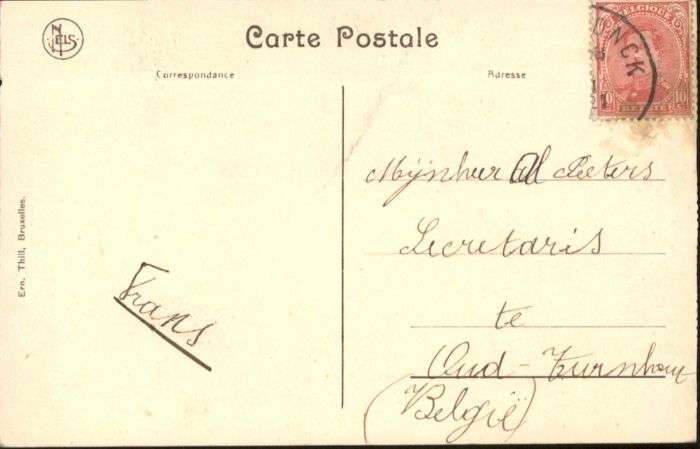 NELS
Carte Postale
Correspondance
Adresse
BELGIQUE
UNCK
10 10
Mijnheer Al Peeters
Secretaris
te
Oud-Turnhout
(België)
Frans
Ern. Thill, Bruxelles.